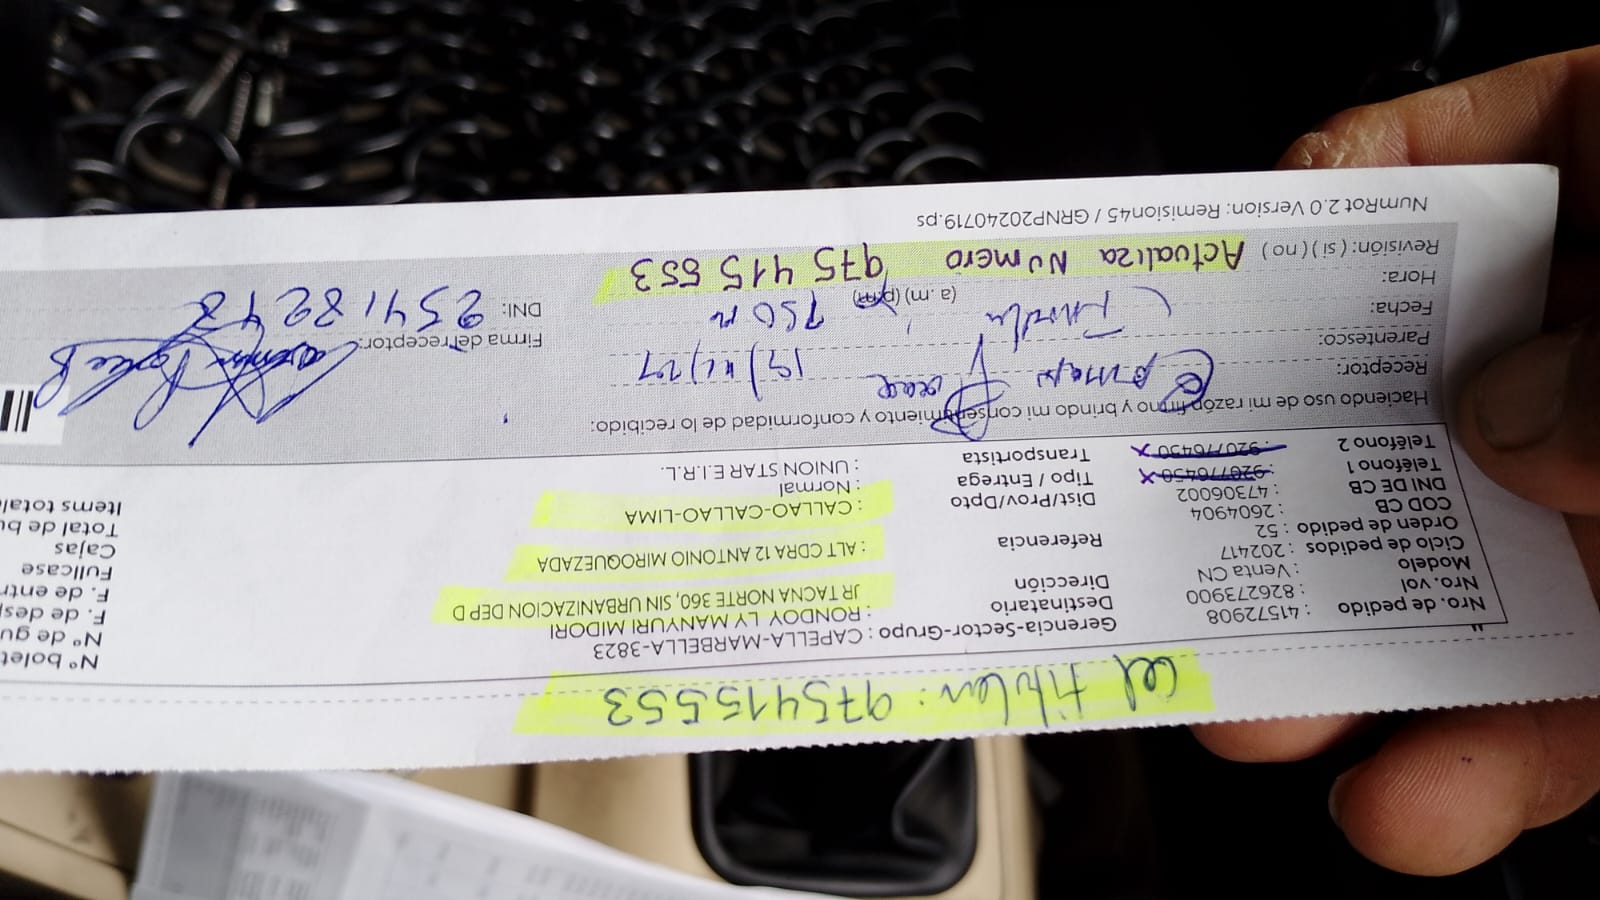 Cel titular: 975415553
Nro. de pedido : 41572908
Nro. vol : 826273900
Modelo : Venta CN
Ciclo de pedidos : 202417
Orden de pedido : 52
COD CB : 2604904
DNI DE CB : 47306002
Teléfono 1 : 920776450 x
Teléfono 2 : 920776450 x
Gerencia-Sector-Grupo : CAPELLA-MARBELLA-3823
Destinatario : RONDOY LY MANYURI MIDORI
Dirección JR TACNA NORTE 360, SIN URBANIZACION DEP D
Referencia : ALT CDRA 12 ANTONIO MIROQUEZADA
Dist/Prov/Dpto : CALLAO-CALLAO-LIMA
Tipo / Entrega : Normal
Transportista : UNION STAR E.I.R.L.
Nº bolet
Nº de gu
F. de des
F. de entr
Fullcase
Cajas
Total de bu
Items totale
Haciendo uso de mi razón firmo y brindo mi consentimiento y conformidad de lo recibido:
Receptor:
Parentesco:
Fecha:
Hora: (a.m) (p.m)
Revisión: (si) (no) Actualiza Numero 975 415 553
Firma del receptor:
DNI: 25418248
NumRot 2.0 Version: Remision45 / GRNP20240719.ps